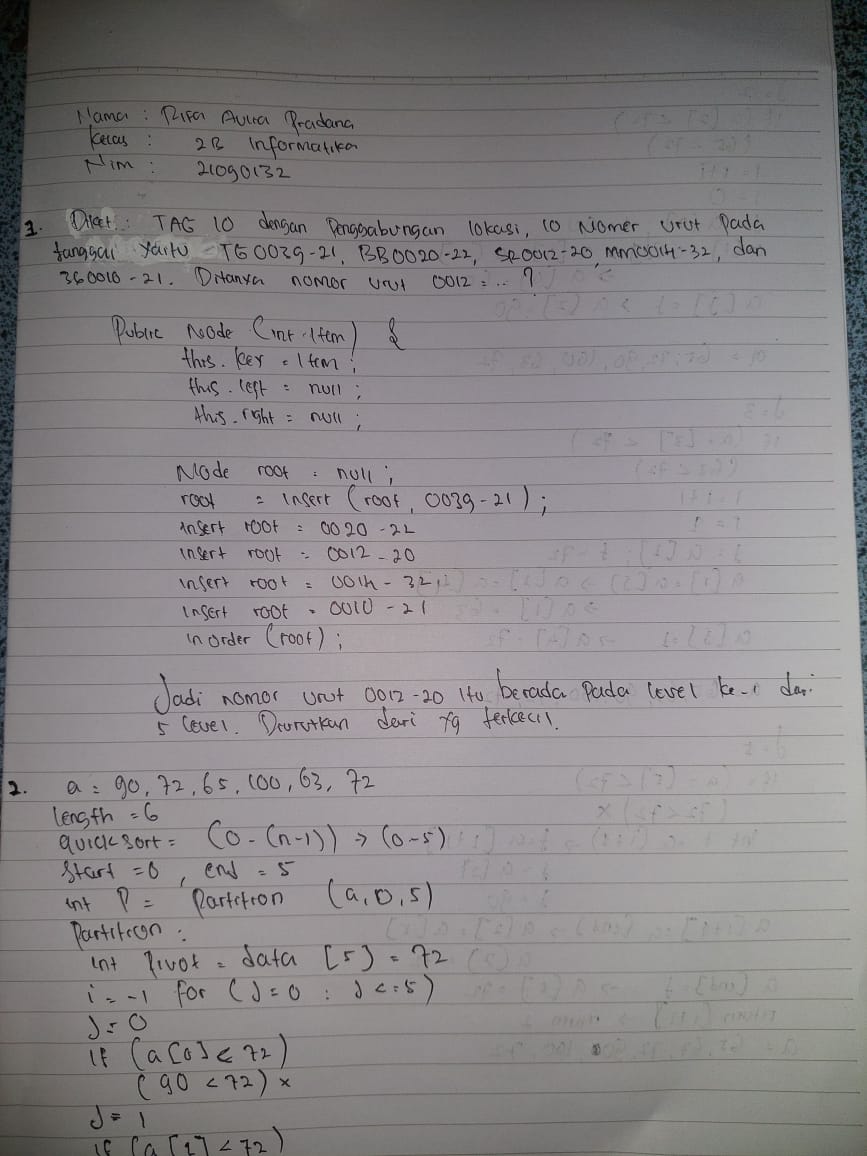 Nama : Rifa Aulia Pradana
Kelas : 2B Informatika
Nim : 21090132
1. Diket : TAG 10 dengan Penggabungan lokasi, 10 Nomer urut Pada
tanggal yaitu TG0039-21, BB0020-22, SR0012-20, mm0014-32, dan
360010-21. Ditanya nomor urut 0012 = ... ?
Public Node (int item) {
this. key = Item ;
this. left = null ;
this. right = null ;
Node root = null ;
root = insert (root, 0039-21) ;
insert root = 0020-22
insert root = 0012-20
insert root = 0014-32
insert root = 0010-21
in order (root) ;
Jadi nomor urut 0012-20 itu berada Pada level ke-1 dari
5 level. Diurutkan dari yg terkecil.
2. a = 90, 72, 65, 100, 63, 72
length = 6
quick sort = (0 - (n-1)) → (0-5)
Start = 0 , end = 5
int P = Partition (a, 0, 5)
Partition :
int Pivot = data [5] = 72
i = -1 for (J=0 : J <= 5)
J = 0
If (a[0] < 72)
(90 < 72) ×
J = 1
if (a [1] < 72)